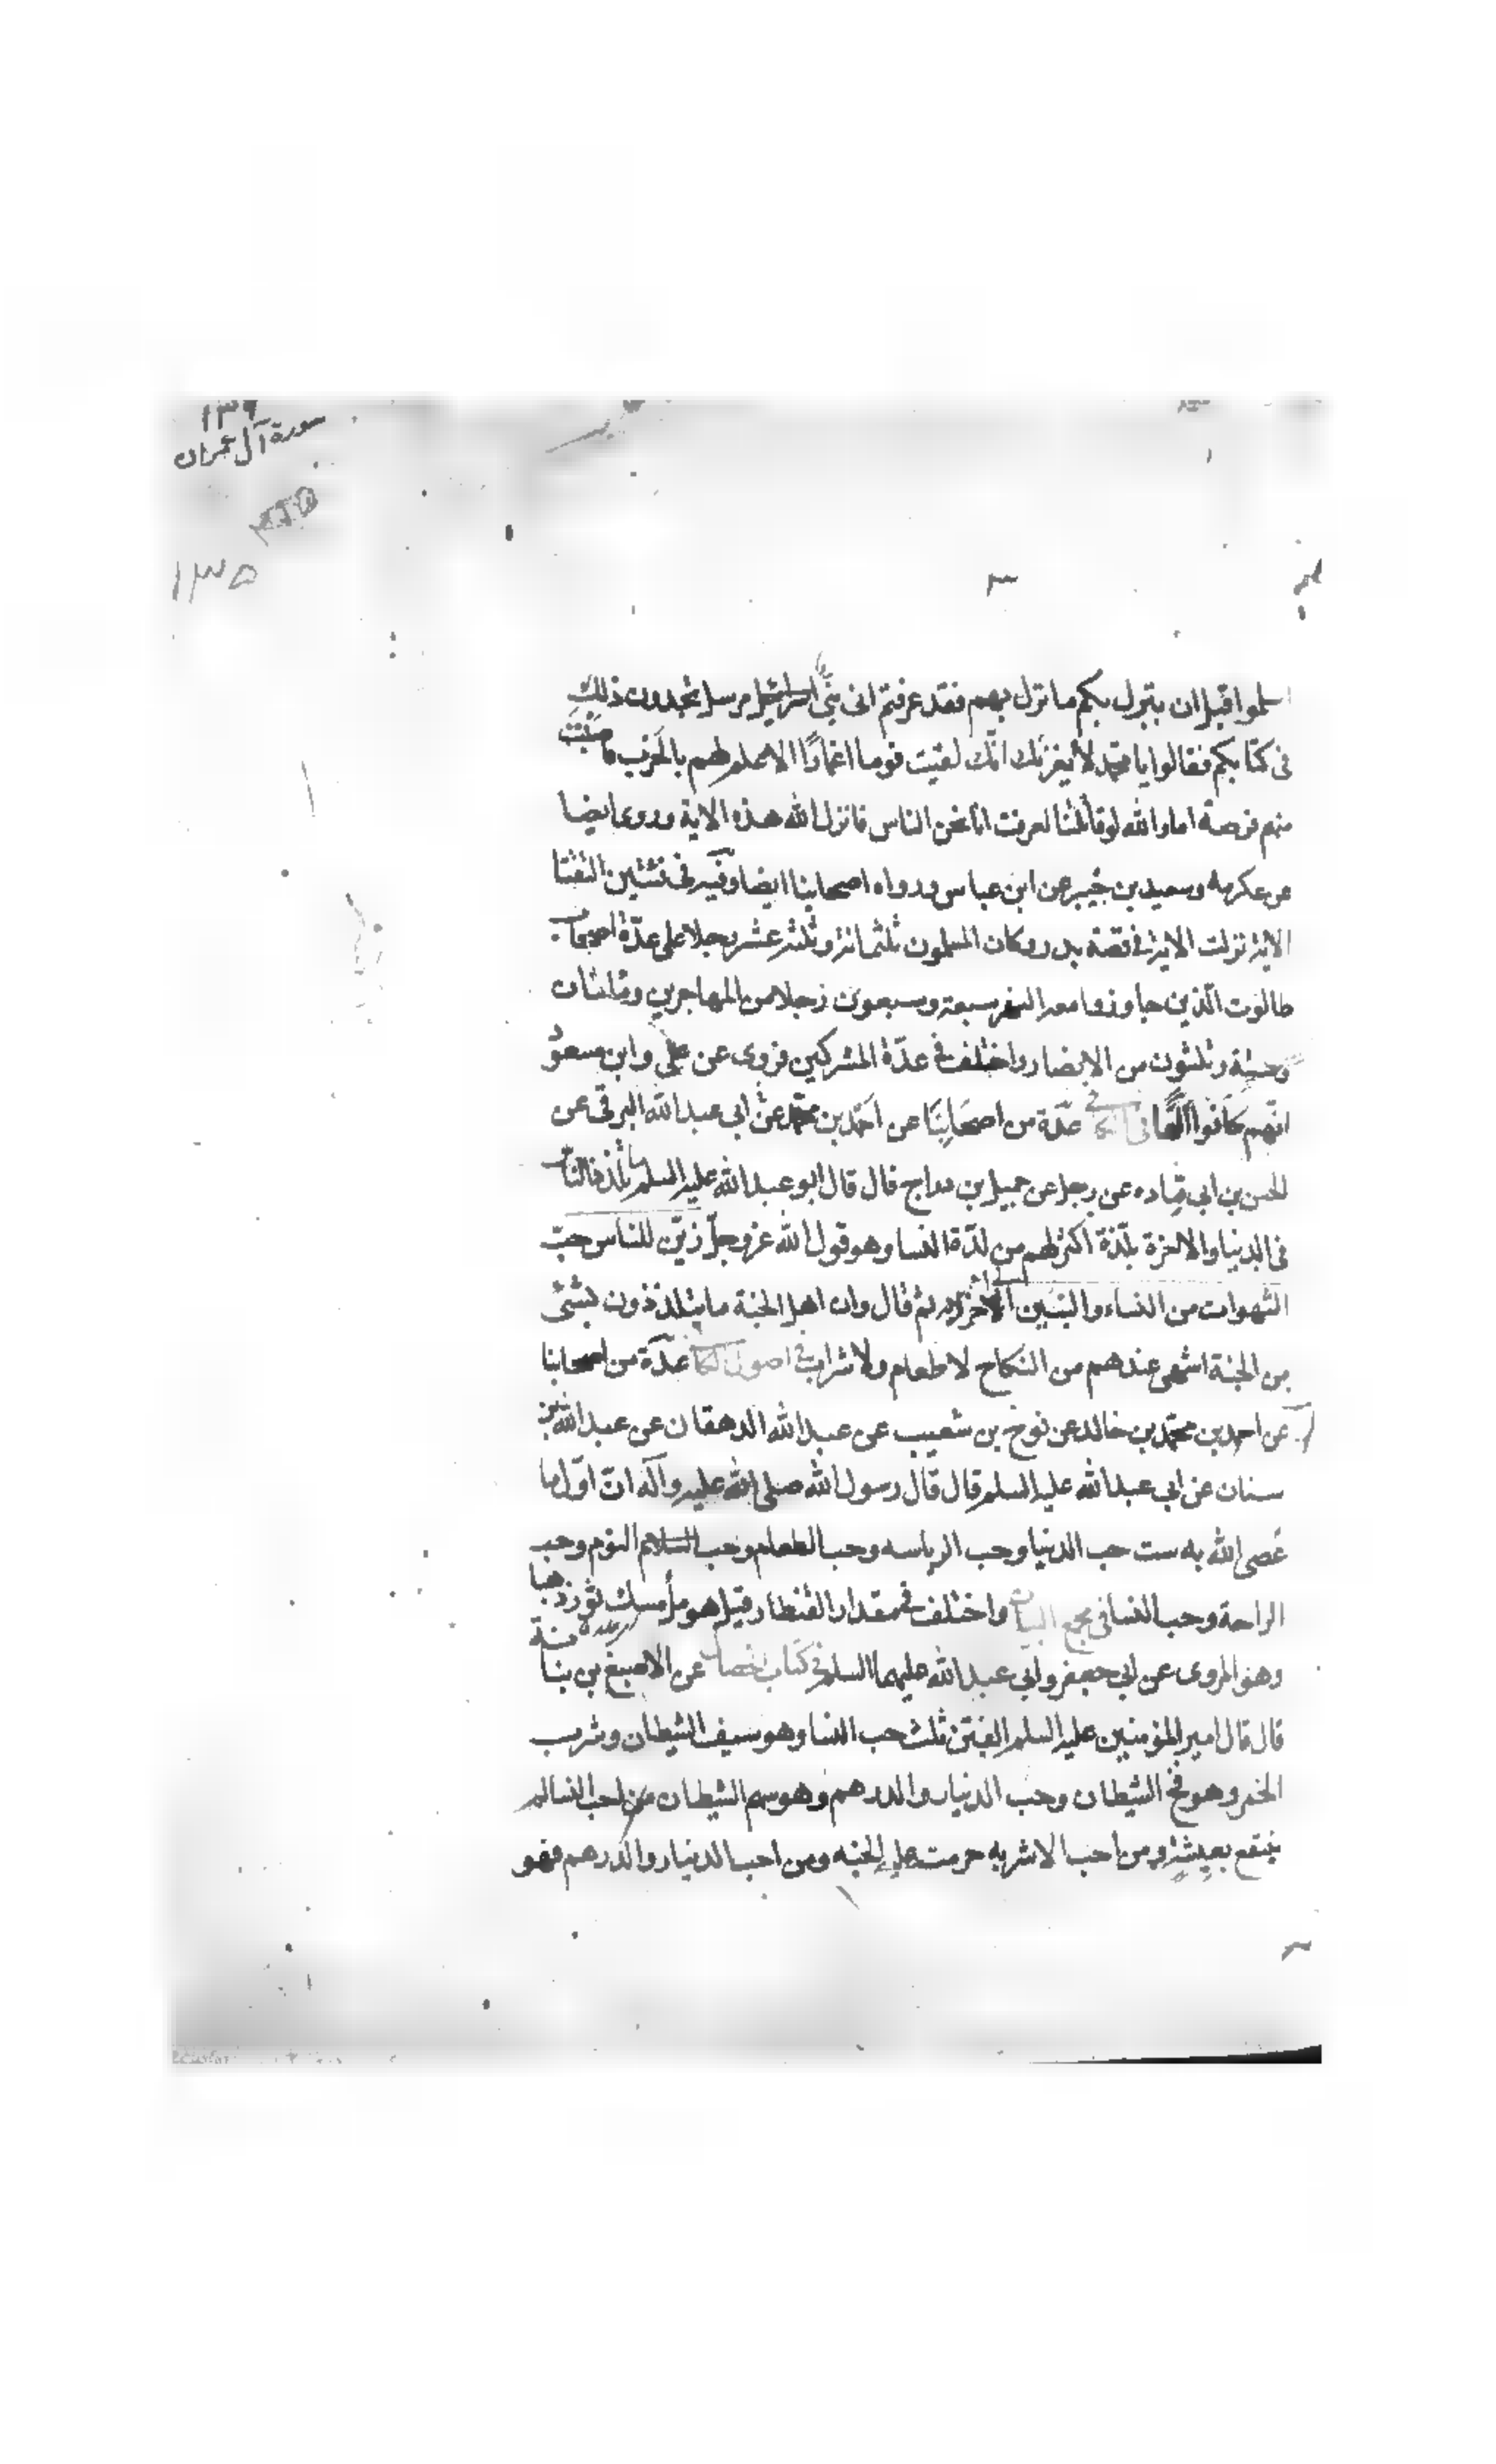 ١٣٩
سورة آل عمران
١٣٥
اسلموا قبل ان ينزل بكم ما نزل بهم فقد عرفتم انى نبىّ مرسل تجدون ذلك
فى كتابكم فقالوا يا محمد لا يغرنك انك لقيت قوما اغمارًا لا علم لهم بالحرب فاصبت
منهم فرصة اما والله لو قاتلتنا لعرفت انا نحن الناس فانزل الله هذه الاية وروى ايضا
عن عكرمه وسعيد بن جبير عن ابن عباس ورواه اصحابنا ايضا وفيه فى فئتين التقتا
الاية نزلت الاية فى قصة بدر وكان المسلمون ثلثمائة وثلثة عشر رجلا على عدّة اصحاب
طالوت الّذين جاوزوا معه النهر سبعة وسبعون رجلا من المهاجرين ومائتان
وستة وثلثون من الانصار واختلف فى عدّة المشركين فروى عن على وابن مسعود
انهم كانوا الفا فى الكافى عدّة من اصحابنا عن احمد بن محمد عن ابى عبدالله البرقى عن
الحسن بن ابى قتاده عن رجل عن جميل بن دراج قال قال ابو عبدالله عليه السلم ما تلذذ الناس
فى الدنيا والاخرة بلذّة اكثر لهم من لذّة النسا وهو قول الله عز وجل زيّن للناس حبّ
الشهوات من النساء والبنين الى اخر الاية ثم قال وان اهل الجنة ما يتلذذون بشىء
من الجنة اشهى عندهم من النكاح لا طعام ولا شراب فى اصول الكافى عدّة من اصحابنا
عن احمد بن محمّد بن خالد عن نوح بن شعيب عن عبدالله الدهقان عن عبدالله بن
سنان عن ابى عبدالله عليه السلم قال قال رسول الله صلى الله عليه وآله انّ اوّل ما
عُصى الله به ست حب الدنيا وحب الرياسه وحب الطعام وحب النوم وحب
الراحة وحب النسا فى مجمع البيان واختلف فى مقدار القنطار قيل هو ملأ مسك ثور ذهبا
وهو المروى عن ابى جعفر وابى عبدالله عليهما السلم فى كتاب الخصال عن الاصبغ بن نباتة
قال قال امير المؤمنين عليه السلم الفتن ثلث حب النسا وهو سيف الشيطان وشرب
الخمر وهو فخ الشيطان وحب الدينار والدرهم وهو سهم الشيطان من احب النسا لم
ينتفع بعيشه ومن احب الاشربه حرمت عليه الجنه ومن احب الدينار والدرهم فهو